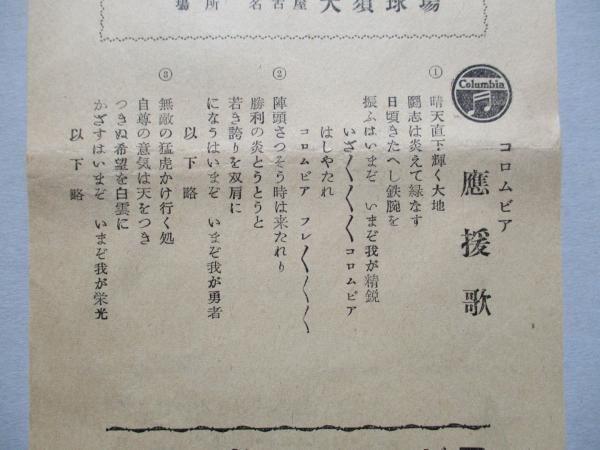 場所 名古屋 大須球場
Columbia
コロムビア
應援歌
① 晴天直下輝く大地
闘志は炎えて緑なす
日頃きたへし鉄腕を
振ふはいまぞ いまぞ我が精鋭
いざ〳〵〳〵〳〵コロムビア
はしやたれ
コロムビア フレ〳〵〳〵〳〵
② 陣頭さつそう時は来たれり
勝利の炎とうとうと
若き誇りを双肩に
になうはいまぞ いまぞ我が勇者
以下略
③ 無敵の猛虎かけ行く処
自尊の意気は天をつき
つきぬ希望を白雲に
かざすはいまぞ いまぞ我が栄光
以下略